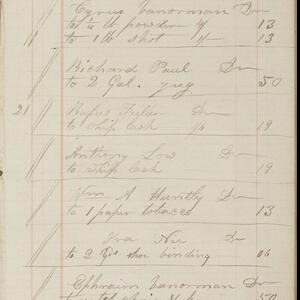 Cyrus Vanorman Dr
to 1/4 lb powder 1/ 13
to 1 lb shot 1/ 13
Richard Paul Dr
to 2 Gal. jug 50
21 Rufus Fuller Dr
to whip lash 1/6 19
Anthony Low Dr
to whip lash 19
Wm A Huntly Dr
to 1 paper tobacco 13
Ira Nie Dr
to 2 shoe binding 06
Ephraim Vanorman Dr
50